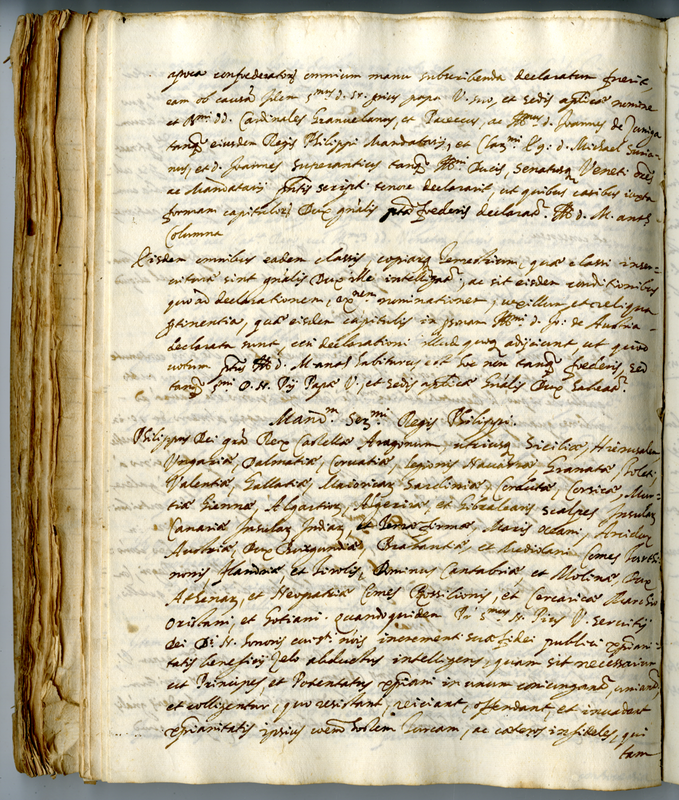 apoca confederatorū omnium manu subscribenda declaratum fuerit,
eam ob causā Idem Smus d. N. pius papa V. suo, et sedis aplicæ nomine
et Rmi dd. Cardinales Granuelanus, et Paceccus, ac Illmus d. Joannes de Zuniga
tanqȝ eiusdem Regis Philippi Mandatarij, et Clarmi d. Michael Suria-
nus, et d. Joannes Superantius tanqȝ Illmi Ducis, Senatusqȝ Veneti
ac Mandatarij pntis script. tenore declararūt, ut quibus casibus iuxta
formam capitulorū Dux gnalis pti federis declarad. Illo d. M. antō
Columna
Eisdem omnibus eadem classis, copiarqȝ terrestrium, quæ classi inser-
uituræ sint gnalis Dux ille intelligatr, ac sit eisdem conditionibus
quo ad declarationem, nominationem, uexillum, et reliqua
ptinentia, quæ eisdem capitulis in psonam Illmi d. Jo. de Austria
declarata sunt, cui declarationi illud quoqȝ adijciunt ut quod
uotum ptus Illo d. M. antō habiturus est hoc nōn tanqȝ federis, sed
tanqȝ Smi D. N. Pij Papæ V., et sedis aplicæ gnalis Dux habeat.
Mandm Sermi Regis Philippi.
Philippus Dei grā Rex Castellæ Aragonum, utriusqȝ Siciliæ, Hierusalem
Vngariæ, Dalmatiæ, Coruatiæ, legionis Nauarræ Granatæ, Toleti
Valentiæ, Gallatiæ Maioricarȝ Sardiniæ, Cordubæ, Corsicæ, Mur-
tiæ Giennæ, Algarbiȝ, Algericæ, et Gibralcaris Insularȝ
Canariæ Insularȝ Indiarȝ, et Terræ firmæ, Maris oceani, Archidux
Austriæ, Dux Burgundiæ, Brabantiæ, et Mediolani Comes
nonis, Flandriæ, et Tirolis, Dominus Cantabriæ, et Molinæ, Dux
Athenarȝ, et Neopatriæ Comes Rossilionis, et Cercaricæ Marchio
Oristani, et Gotiani. Quandoquidem Pr Smus N. Pius V. Seruitij
Dei D. N. honoris incrementi suæ fidei publici xpiani-
tatis beneficij Zelo abductus intelligens, quam sit necessarium
ut Principes, et Potentatus xpiani in unum coniungantr, uniantr,
et colligentur, quo resistant, reiciant, offendant, et inuadant
xpianitatis ipsius coēm hostem Turcam, ac cæteros infideles, qui
tam